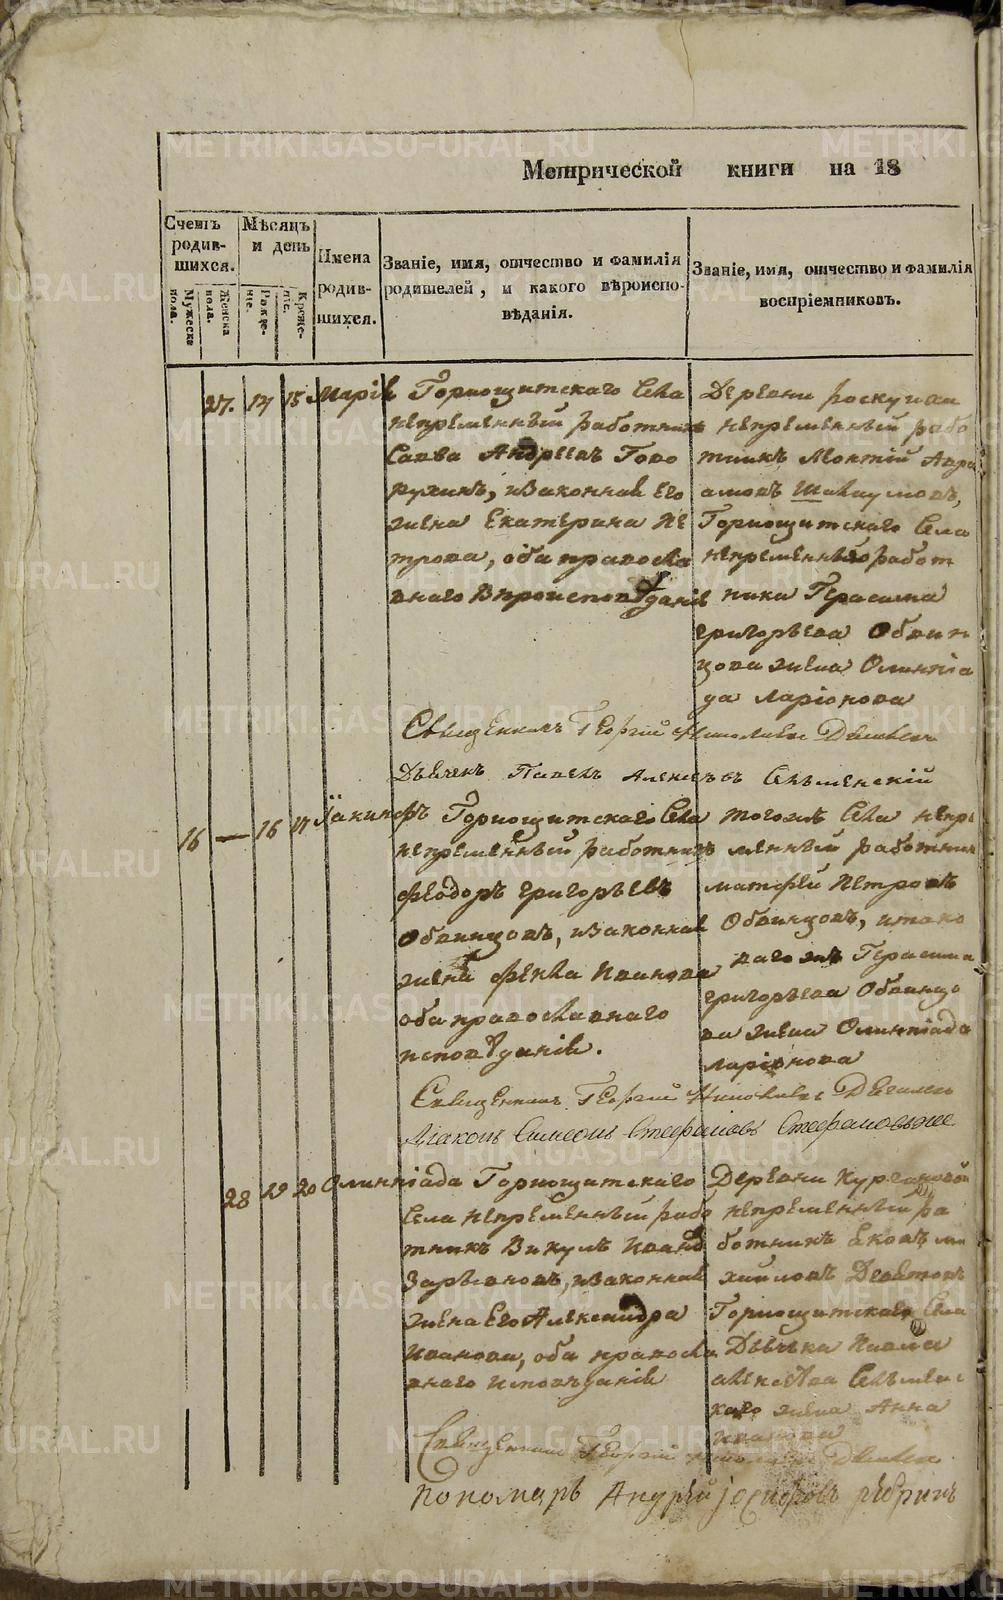 Метрической книги на 18
Счетъ родив-шихся.
Мужеска пола.
Женска пола.
Мѣсяцъ и день
Рожде-нiе.
Креще-нiе.
Имена родив-шихся.
Званіе, имя, отчество и фамилія родителей, и какого вѣроиспо-вѣданія.
Званіе, имя, отчество и фамилія воспріемниковъ.
27. 14 15 Марія
Горнощитскаго села
непременный работникъ
Савва Андреевъ Гово
рухинъ, изаконная Его
жена Екатерина Пе
трова, оба правосла
внаго Вѣроисповѣданія
Деревни
непременный рабо
тникъ Авра
амовъ
Горнощитскаго Села
непременнаго работ
ника Герасима
григорьева Обвин
цова жена Олимпіа
да Ларіонова
Священникъ Георгій
Дьячекъ Павелъ Алексѣевъ
16 — 16 17 Іакинфъ
Горнощитскаго Села
непременный работникъ
Феодоръ григорьевъ
Обвинцовъ, изаконная
жена Фекла Иванова
оба православнаго
исповѣданія.
тогожъ Села непре
менный работник
матфей Петровъ
Обвинцовъ, итако
ваго жъ Герасима
григорьева Обвинцо
ва жена Олимпіада
Ларіонова
Священникъ Георгій
Діаконъ Симеонъ Стефановъ
28 19 20 Олимпіада
Горнощитскаго
Села непременный рабо
тникъ Викулъ Иванов
изаконная
жена Его Александра
Иванова, оба правосла
внаго исповѣданія
Деревни Кургановой
непременный ра
ботникъ Яковъ ми
хайловъ
Горнощитскаго Села
Дьячка Павла
алексѣева
каго жена Анна
Иванова
Священникъ Георгій
Пономарь Андрей Іосифовъ